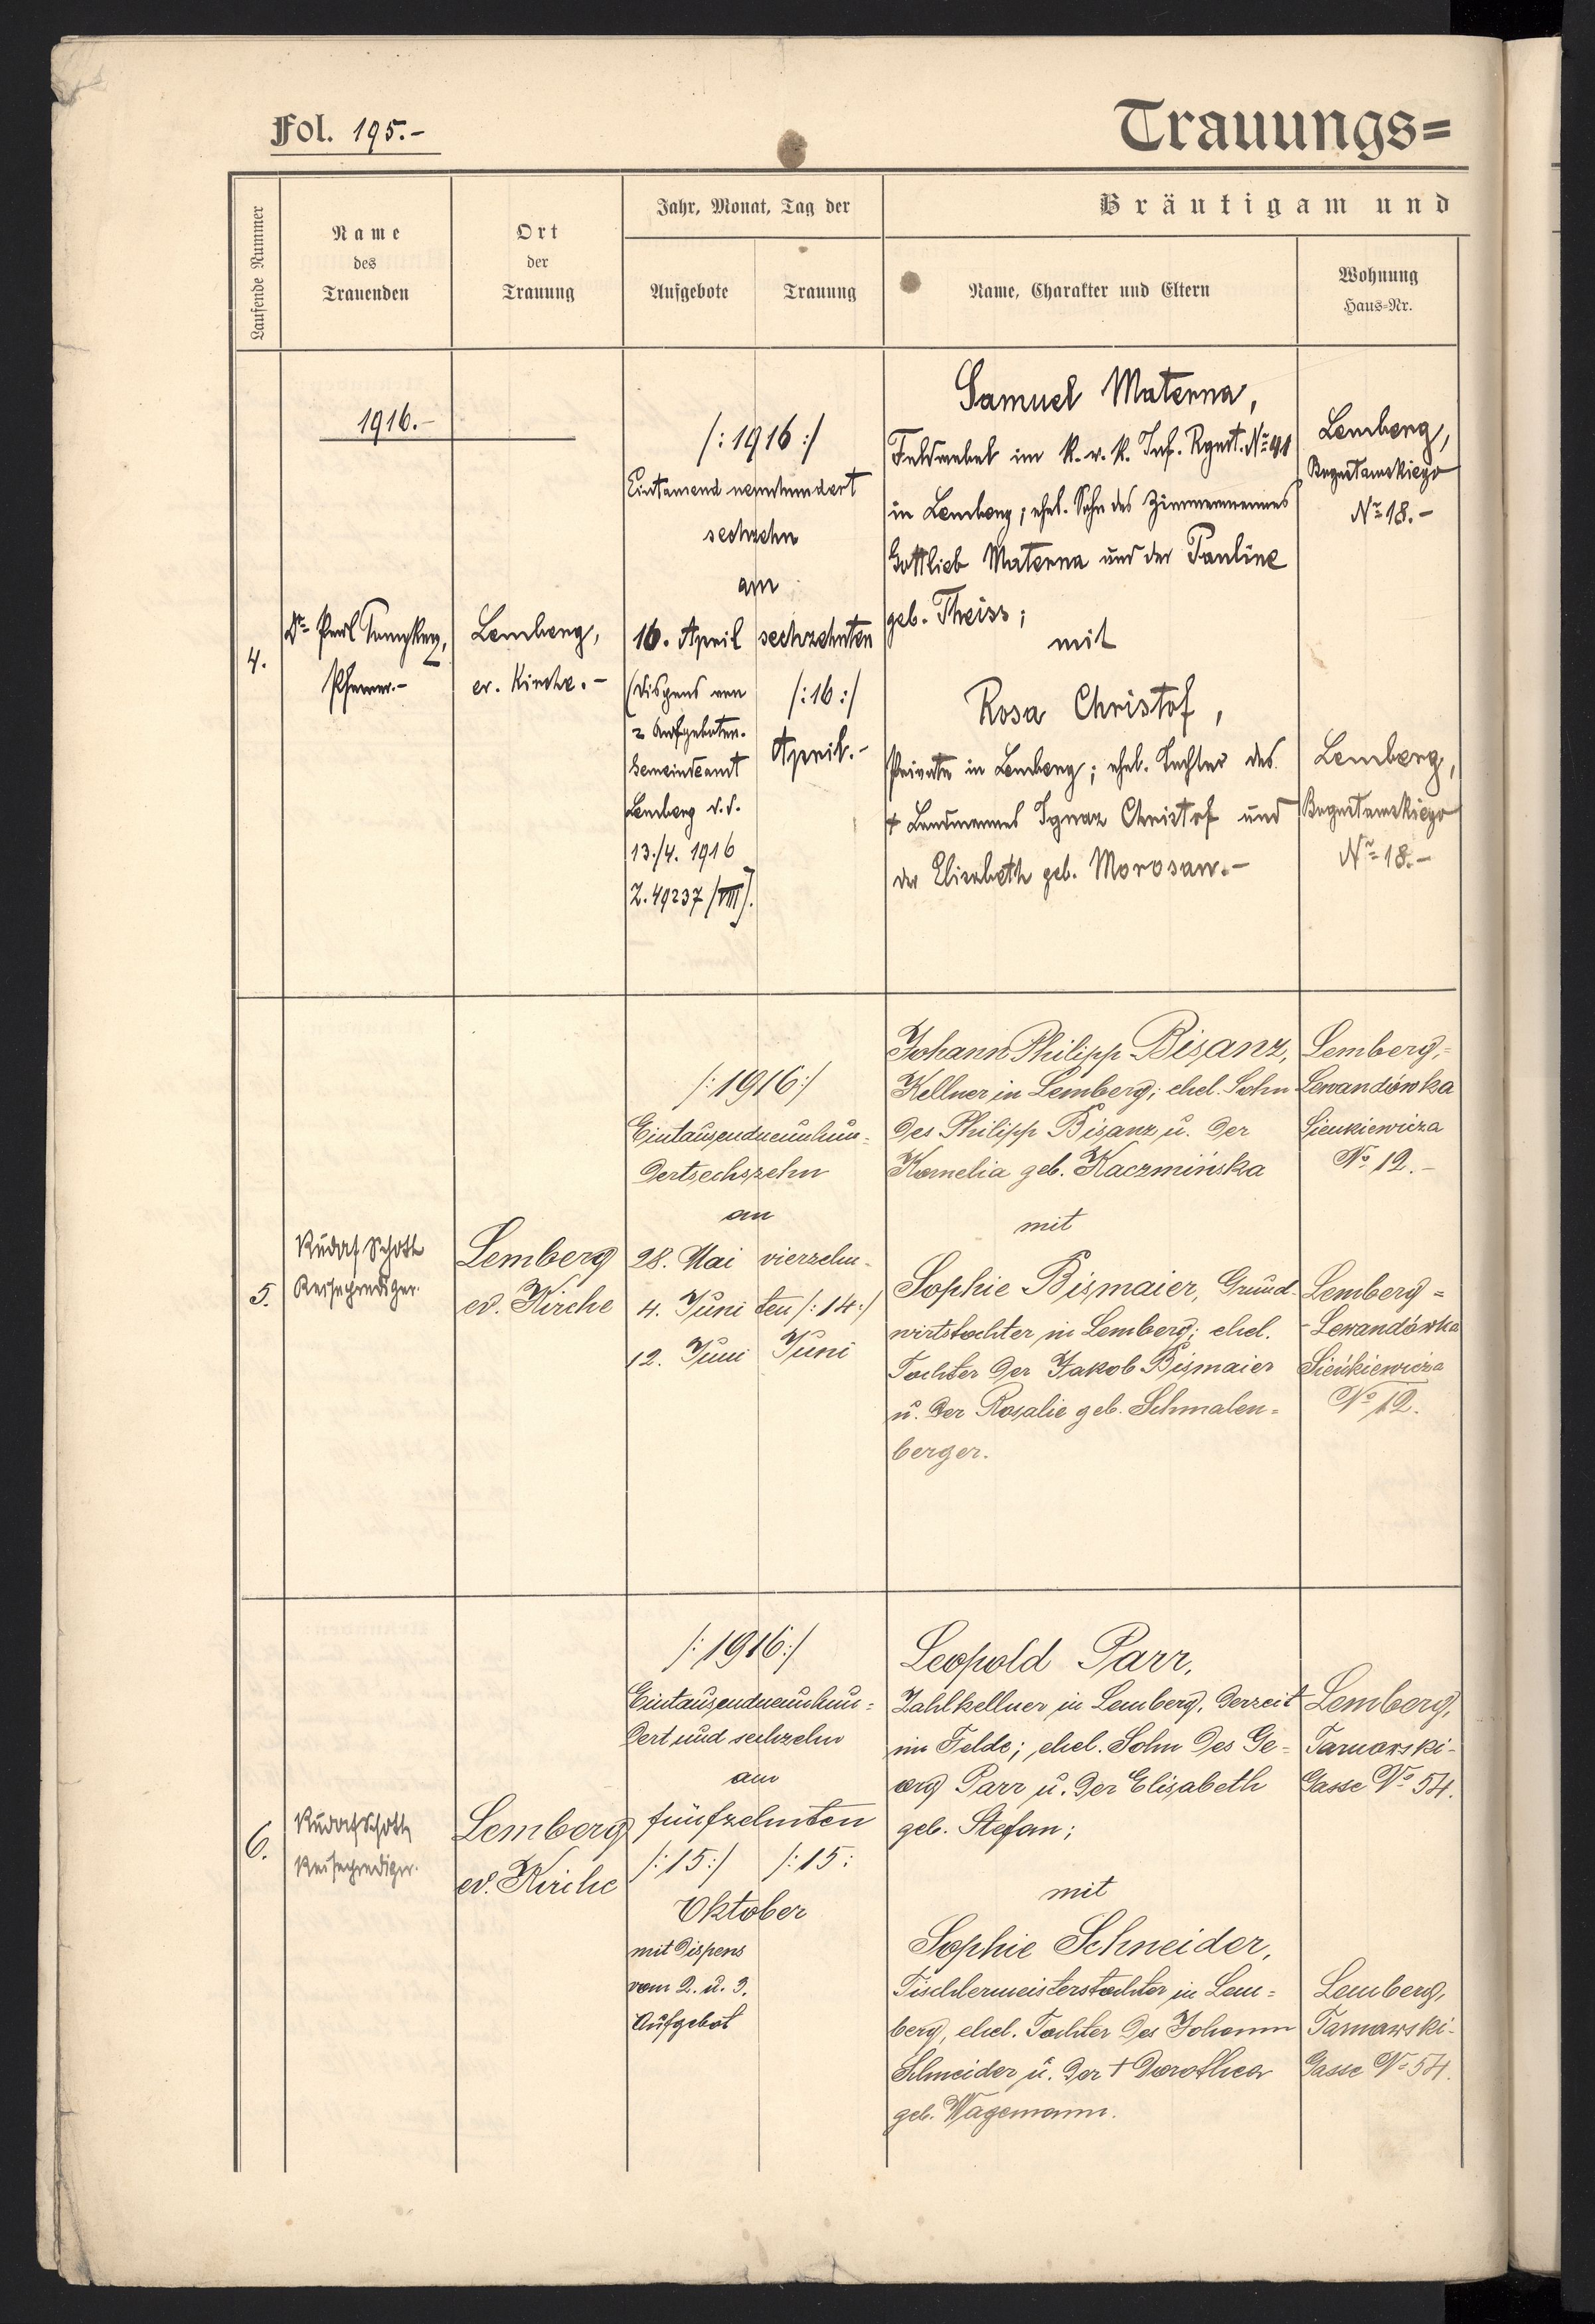 Fol. 195.-
Trauungs=
Laufende Nummer
Name
des
Trauenden
Ort
der
Trauung
Jahr, Monat, Tag der
Aufgebote
Trauung
Bräutigam und
Name, Charakter und Eltern
Wohnung
Haus=Nr.
1916.-
4.
Pfarrer.-
Lemberg,
ev. Kirche.-
/:1916:/
Eintausend neunhundert
sechzehn
am
16. April
(Dispens von
2 Aufgeboten.
Gemeindeamt
Lemberg d.d.
13./4. 1916
Z. 49237/VIII).
sechzehnten
/:16:/
April.-
Samuel Materna,
Feldwebel im k. u. k. Inf. Rgmt. №
in Lemberg; ehel. Sohn des Zimmermannes
Gottlieb Materna und der Pauline
geb. Theiss;
mit
Rosa Christof,
Private in Lemberg; ehel. Tochter des
† Landmannes Ignaz Christof und
der Elisabeth geb. Morosaw.-
Lemberg,
№ 18.-
Lemberg,
№ 18.-
5.
Rudolf Schott
Reiseprediger.
Lemberg
ev. Kirche
/:1916:/
Eintausendneunhun=
dertsechszehn
an
28. Mai
4. Juni
12. Juni
vierzehn-
ten /:14:/
Juni
Johann Philipp Bisanz,
Kellner in Lemberg; ehel. Sohn
des Philipp Bisanz u. der
Kornelia geb. Kaczmińska
mit
Sophie Bismaier, Grund-
wirtstochter in Lemberg; ehel.
Tochter der Jakob Bismaier
u. der Rosalie geb. Schmalen=
berger.
Lemberg,=
Lewandówka
Sienkiewicza
№ 12.-
Lemberg=
-Lewandówka
Sieńkiewicza
№ 12.
6.
Rudolf Schott
Reiseprediger.
Lemberg
ev. Kirche
/:1916:/
Eintausendneunhun=
dert und sechzehn
am
fünfzehnten
/:15:/ /:15:
Oktober
mit Dispens
vom 2. u. 3.
Aufgebot
Leopold Parr,
Zahlkellner in Lemberg, derzeit
im Felde; ehel. Sohn des Ge=
org Parr u. der Elisabeth
geb. Stefan;
mit
Sophie Schneider,
Tischlermeisterstochter in Lem=
berg, ehel. Tochter des Johann
Schneider u. der † Dorothea
geb. Wagemann.
Lemberg,
Tarnowski-
Gasse № 54.
Lemberg,
Tarnowski-
Gasse № 54.